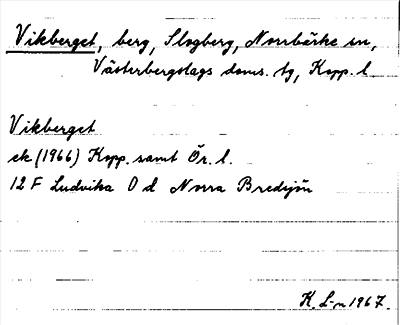 Vikberget, berg, Slogberg, Norrbärke sn,
Västerbergslags doms. tg, Kopp. l.
Vikberget
ek (1966) Kopp. samt Ör. l.
12 F Ludvika O d Norra Bredsjön
K. L-n 1967.